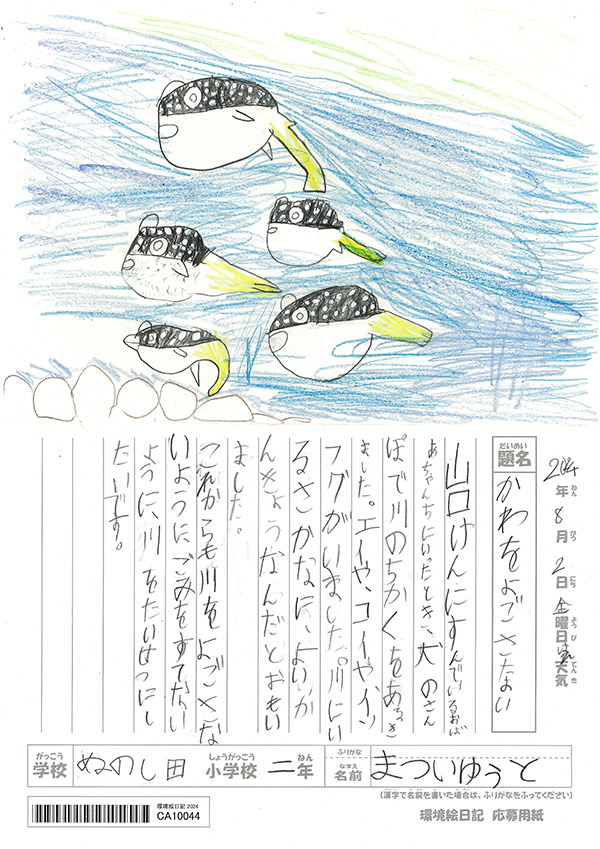 2024年8月2日金曜日 天気
ねん がつ にち ようび てんき
だいめい
題名
かわをよごさない
山口けんにすんでいるおば
あちゃんちにいったとき、犬のさん
ぽで川のちかくをあるき
ました。エイや、コイや、イン
フグがいました。川にい
るさかなに、よいか
んきょうなんだとおもい
ました。
これからも川をよごさな
いように、ごみをすてない
ように、川をたいせつにし
たいです。
がっこう
学校
ぬのし田
しょうがっこう
小学校
二
ねん
年
ふりがな
なまえ
名前
まついゆうと
(漢字で名前を書いた場合は、ふりがなをふってください)
環境絵日記 2024
CA10044
環境絵日記 応募用紙